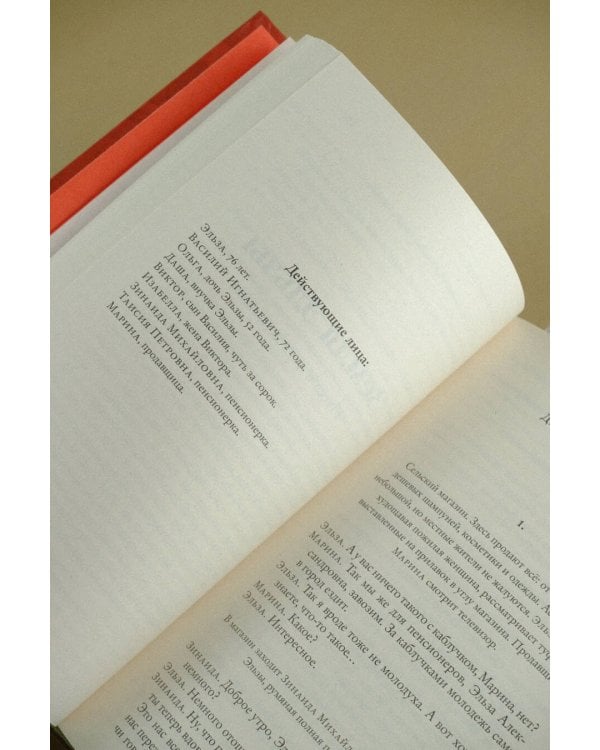 Действующие лица:
Эльза, 76 лет.
Василий Игнатьевич, 72 года.
Ольга, дочь Эльзы, 52 года.
Даша, внучка Эльзы.
Виктор, сын Василия, чуть за сорок.
Изабелла, жена Виктора.
Зинаида Михайловна, пенсионерка.
Таисия Петровна, пенсионерка.
Марина, продавщица.
1.
Сельский магазин. Здесь продают всё: от
дешевых шампуней, косметики и одежды.
небольшой, но местные жители не жалуются. Эльза
худощавая пожилая женщина, рассматривает
выставленные на прилавок в углу магазина.
Марина смотрит телевизор.
Эльза. А у вас ничего такого с каблучком, Марина, нет?
Марина. Так мы же для пенсионеров, Эльза Алек-
сандровна, завозим. За каблучками молодежь
в город ездит.
Эльза. Так я вроде тоже не молодуха. А вот
знаете, что-то такое…
Марина. Какое?
Эльза. Интересное.
В магазин заходит Зинаида
Эльзы, румяная полная
Зинаида. Доброе утро,
немного?
Эльза. Немного
Зинаида. Ну, что
ты теперь
Это нас
нас